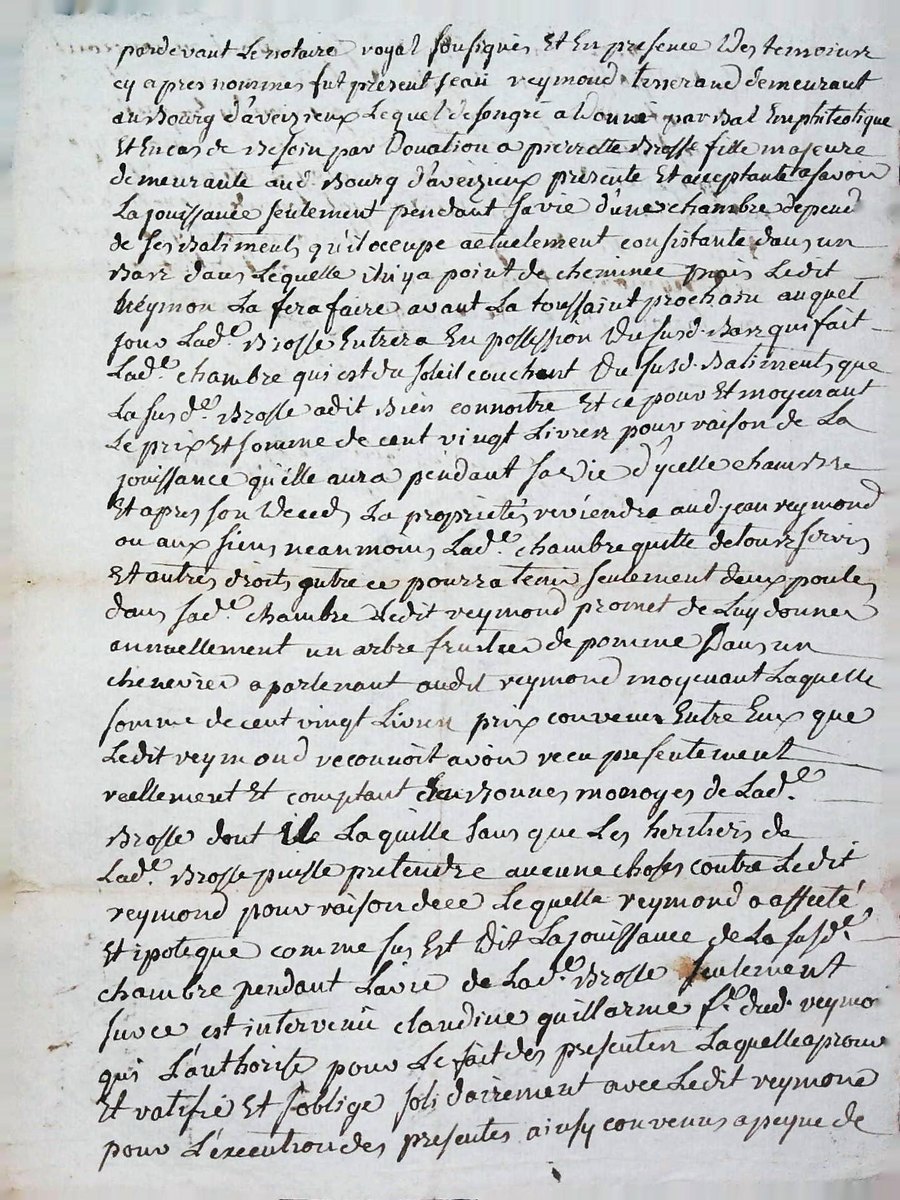 pardevant Le notaire royal sousignés Et En presence Des temoins
cy apres nommes fut present jean reymond tisserand demeurant
au Bourg d'aveizieux Lequel de son gré a Donné par Bal Emphiteotique
Et En cas de Besoin par Donation a pierrette Brosse fille majeure
demeurante aud. Bourg d'aveizieux presente Et acceptante a savoir
La jouissance seulement pendant sa vie d'une chambre depend
de ses Batiments qu'il occupe actuelement consistante dans un
Bas dans Lequelle il n'i y a point de cheminee mais Ledit
Reymon La fera faire avant La toussaint prochain auquel
jour Lad.e Brosse Entrera En possession Du susd. Bas qui fait
Lad.e chambre qui est du soleil couchant Du susd. Batiments que
La susd.e Brosse a dit Bien connoitre Et ce pour Et moyenant
Le prix Et somme de cent vingt Livres pour raison de La
jouissance qu'elle aura pendant sa vie d'ycelle chambre
Et apres son Deced La proprietés reviendra aud. jean reymond
ou aux siens neanmoins Lad.e chambre quitte de tous servis
Et autres droits outre ce pourra tenir seulement deux poules
dans sad.e chambre Ledit reymond promet de Luy donner
annuellement un arbre fruitier de pomme Dans un
chenevier apartenant audit reymond moyenant Laquelle
somme de cent vingt Livres prix convenu Entre Eux que
Ledit reymond reconnoit avoir recu presentement
reellement Et comptant En Bonnes monoyes de Lad.e
Brosse dont Il La quitte sans que Les heritiers de
Lad.e Brosse puisse pretendre aucune choses contre Ledit
reymond pour raison de ce Lequelle reymond a affecté
Et ipoteque comme sus Est Dit La jouissance de La susd.e
chambre pendant La vie de Lad.e Brosse seulement
sur ce est intervenu claudine guillarme f.e dud. reymo
qui L'authorise pour Le fait des presentes Laquelle aprouv
Et ratifie Et s'oblige solidairement avec Ledit reymond
pour L'execution des presentes ainsy convenus a peyne de